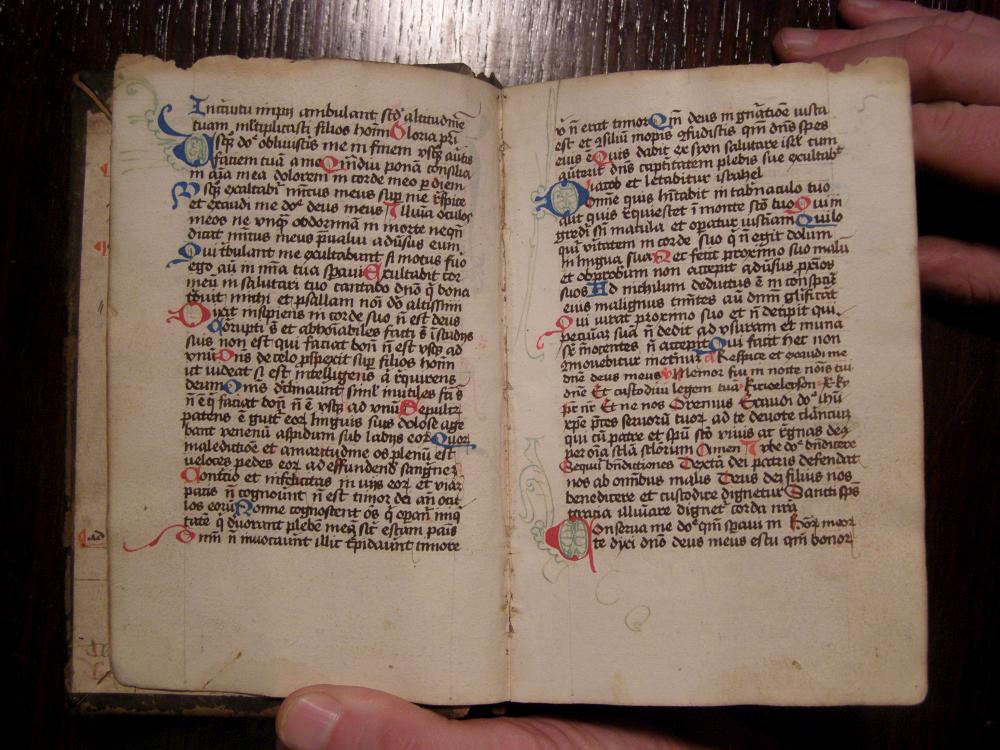 In circuitu impij ambulant scdʒ altitudinē
tuam mltiplicasti filios hoīm Gloria pri
Usqʒ do⁹ obliuistis me in finem vsqʒ auˀtis
faciem tuā a me Qmdiu ponā consilia
in aīa mea dolorem in corde meo p diem
Usqʒ exaltabiˀ inīcus meus sup me Rˀspice
et exaudi me do⁹ deus meus Illuīa oculos
meos ne vnqʒ obdormiā in morte neqn̄
dicat inīcus meus p̄ualui adūsus eum
Qui tbulant me exultabunt si motus fuo
ego aū in mīa tua spaui Exultabit cor
meū in salutari tuo cantabo dn̄o q̇ bona
tbuit michi et psallam noī dn̄i altissimi
Dixit insipiens in corde suo n̄ est deus
Corupti st̄ et abhoīabiles facti st̄ ī studijs
suis non est qui faciat bonū n̄ est vsqʒ ad
vnū Dn̄s de celo pspexit sup filios hoīm
ut videat si est intelligens a requirens
deum Om̄s declinauūt simˡ inutiles fcī st̄
n̄ ē q̇ faciat bonū n̄ ē vsqʒ ad vnū Sepulcr
patens ē guttˀ eorʒ linguis suis dolose age
bant venenū aspidum sub labijs eorʒ Quorʒ
maledictōe et amaritudine os plenū est
veloces pedes eorʒ ad effundendˀ sanguinē
Contricio et infelicitas in vijs eorʒ et viam
pacis n̄ cognouūt n̄ est timor dei an̄ ocu
los eorū Nonne cognoscent oēs q̇ opantˀ iniqˀ
tatē q̇ deuorant plebē meā sic̄ escam panis
Dn̄m n̄ inuocauūt illic trepidauūt timore
v̇ n̄ erat timor Qm̄ deus in gnātione iusta
est et ꝯsiliū inopis ꝯfudistis qm̄ dn̄s spes
eius ē Quis dabit ex syon salutare isrl̄ cum
auˀterit dn̄s captiuitatem plebis sue exultabit
iacob et letabitur israhel
Domine quis hˀitabit in tabnaculo tuo
aut quis Rˀquiescet ī monte scō tuo Qui in
gredit̄ si macula et opatur iusticiam Qui lo
quit̄ vˀitatem in corde suo q̇ n̄ egit dolum
in lingua sua Nec fecit proximo suo malū
et obprobrium non accepit adūsus pxīos
suos Ad nichilum deductus ē in conspcū
eius malignus tīmētes aū dn̄m glīficat
Qui iurat proximo suo et n̄ decipit qui
pecuniā suā n̄ dedit ad vsuram et muna
sr̄ īnocentes n̄ accepit Qui facit hec non
ꝯmouebitur in et̄nū Respice et exaudi me
dn̄e deus meus Memor fui in nocte noīs tui
dn̄e Et custodiui legem tuā Kyrieeleyson x ky
pr̄ nr̄ Et ne nos Oremus Exaudi do⁹ ihū
xpe p̄ces seruorū tuorʒ ad te deuote clamanciū
qui cū patre et spū scō viuis at rˀgnas deʒ
per oīa scl̄a sclorum Amen Iube do⁹ bn̄dicere
Sequūt̄ bn̄dictiones Dextˀa dei patris defendat
nos ab omibus malis Deus dei filius nos
benedicere et custodire dignetur Sancti sp̄s
gracia illuīare dignet̄ corda nrā
Conserua me do⁹ qm̄ spaui in
te dixi dn̄o deus meus es tu qm̄ bonorʒ